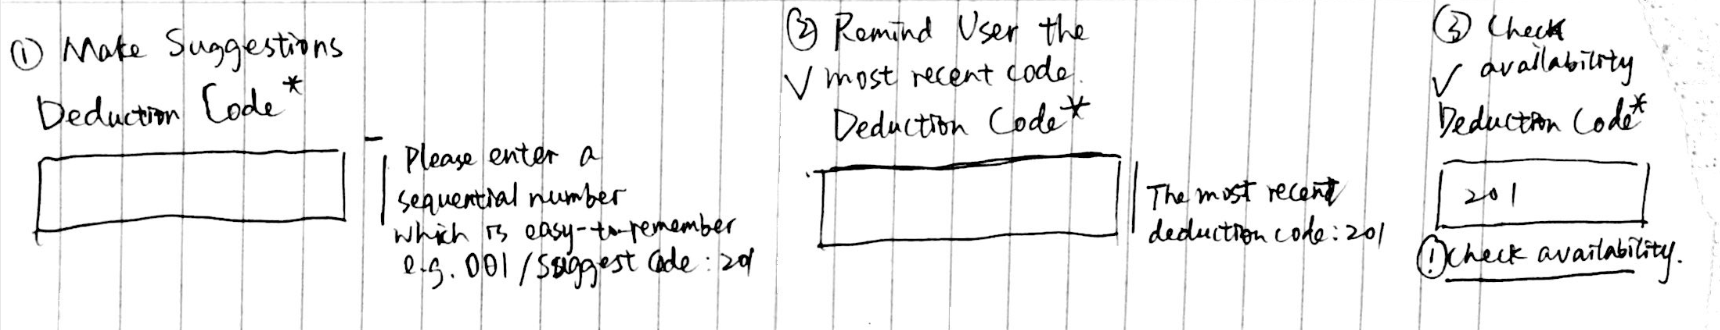 ① Make Suggestions
Deduction Code*
Please enter a
sequential number
which is easy-to-remember
e.g. 001 / Suggest Code : 201
② Remind User the
✓ most recent code.
Deduction Code*
The most recent
deduction code : 201
③ Check
✓ availability
Deduction Code*
201
! Check availability.